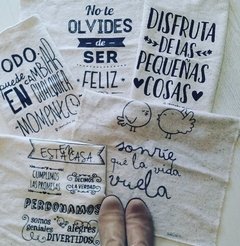 TODO
puede
CAMBIAR
EN CUALQUIER
MOMENTO
No te
OLVIDES
de
SER
FELIZ
DISFRUTA
DE LAS
PEQUEÑAS
COSAS
EN
ESTA CASA
CUMPLIMOS
LAS PROMESAS
DECIMOS
LA VERDAD
PERDONAMOS
somos
geniales
alegres
DIVERTIDOS
sonríe
que la vida
vuela